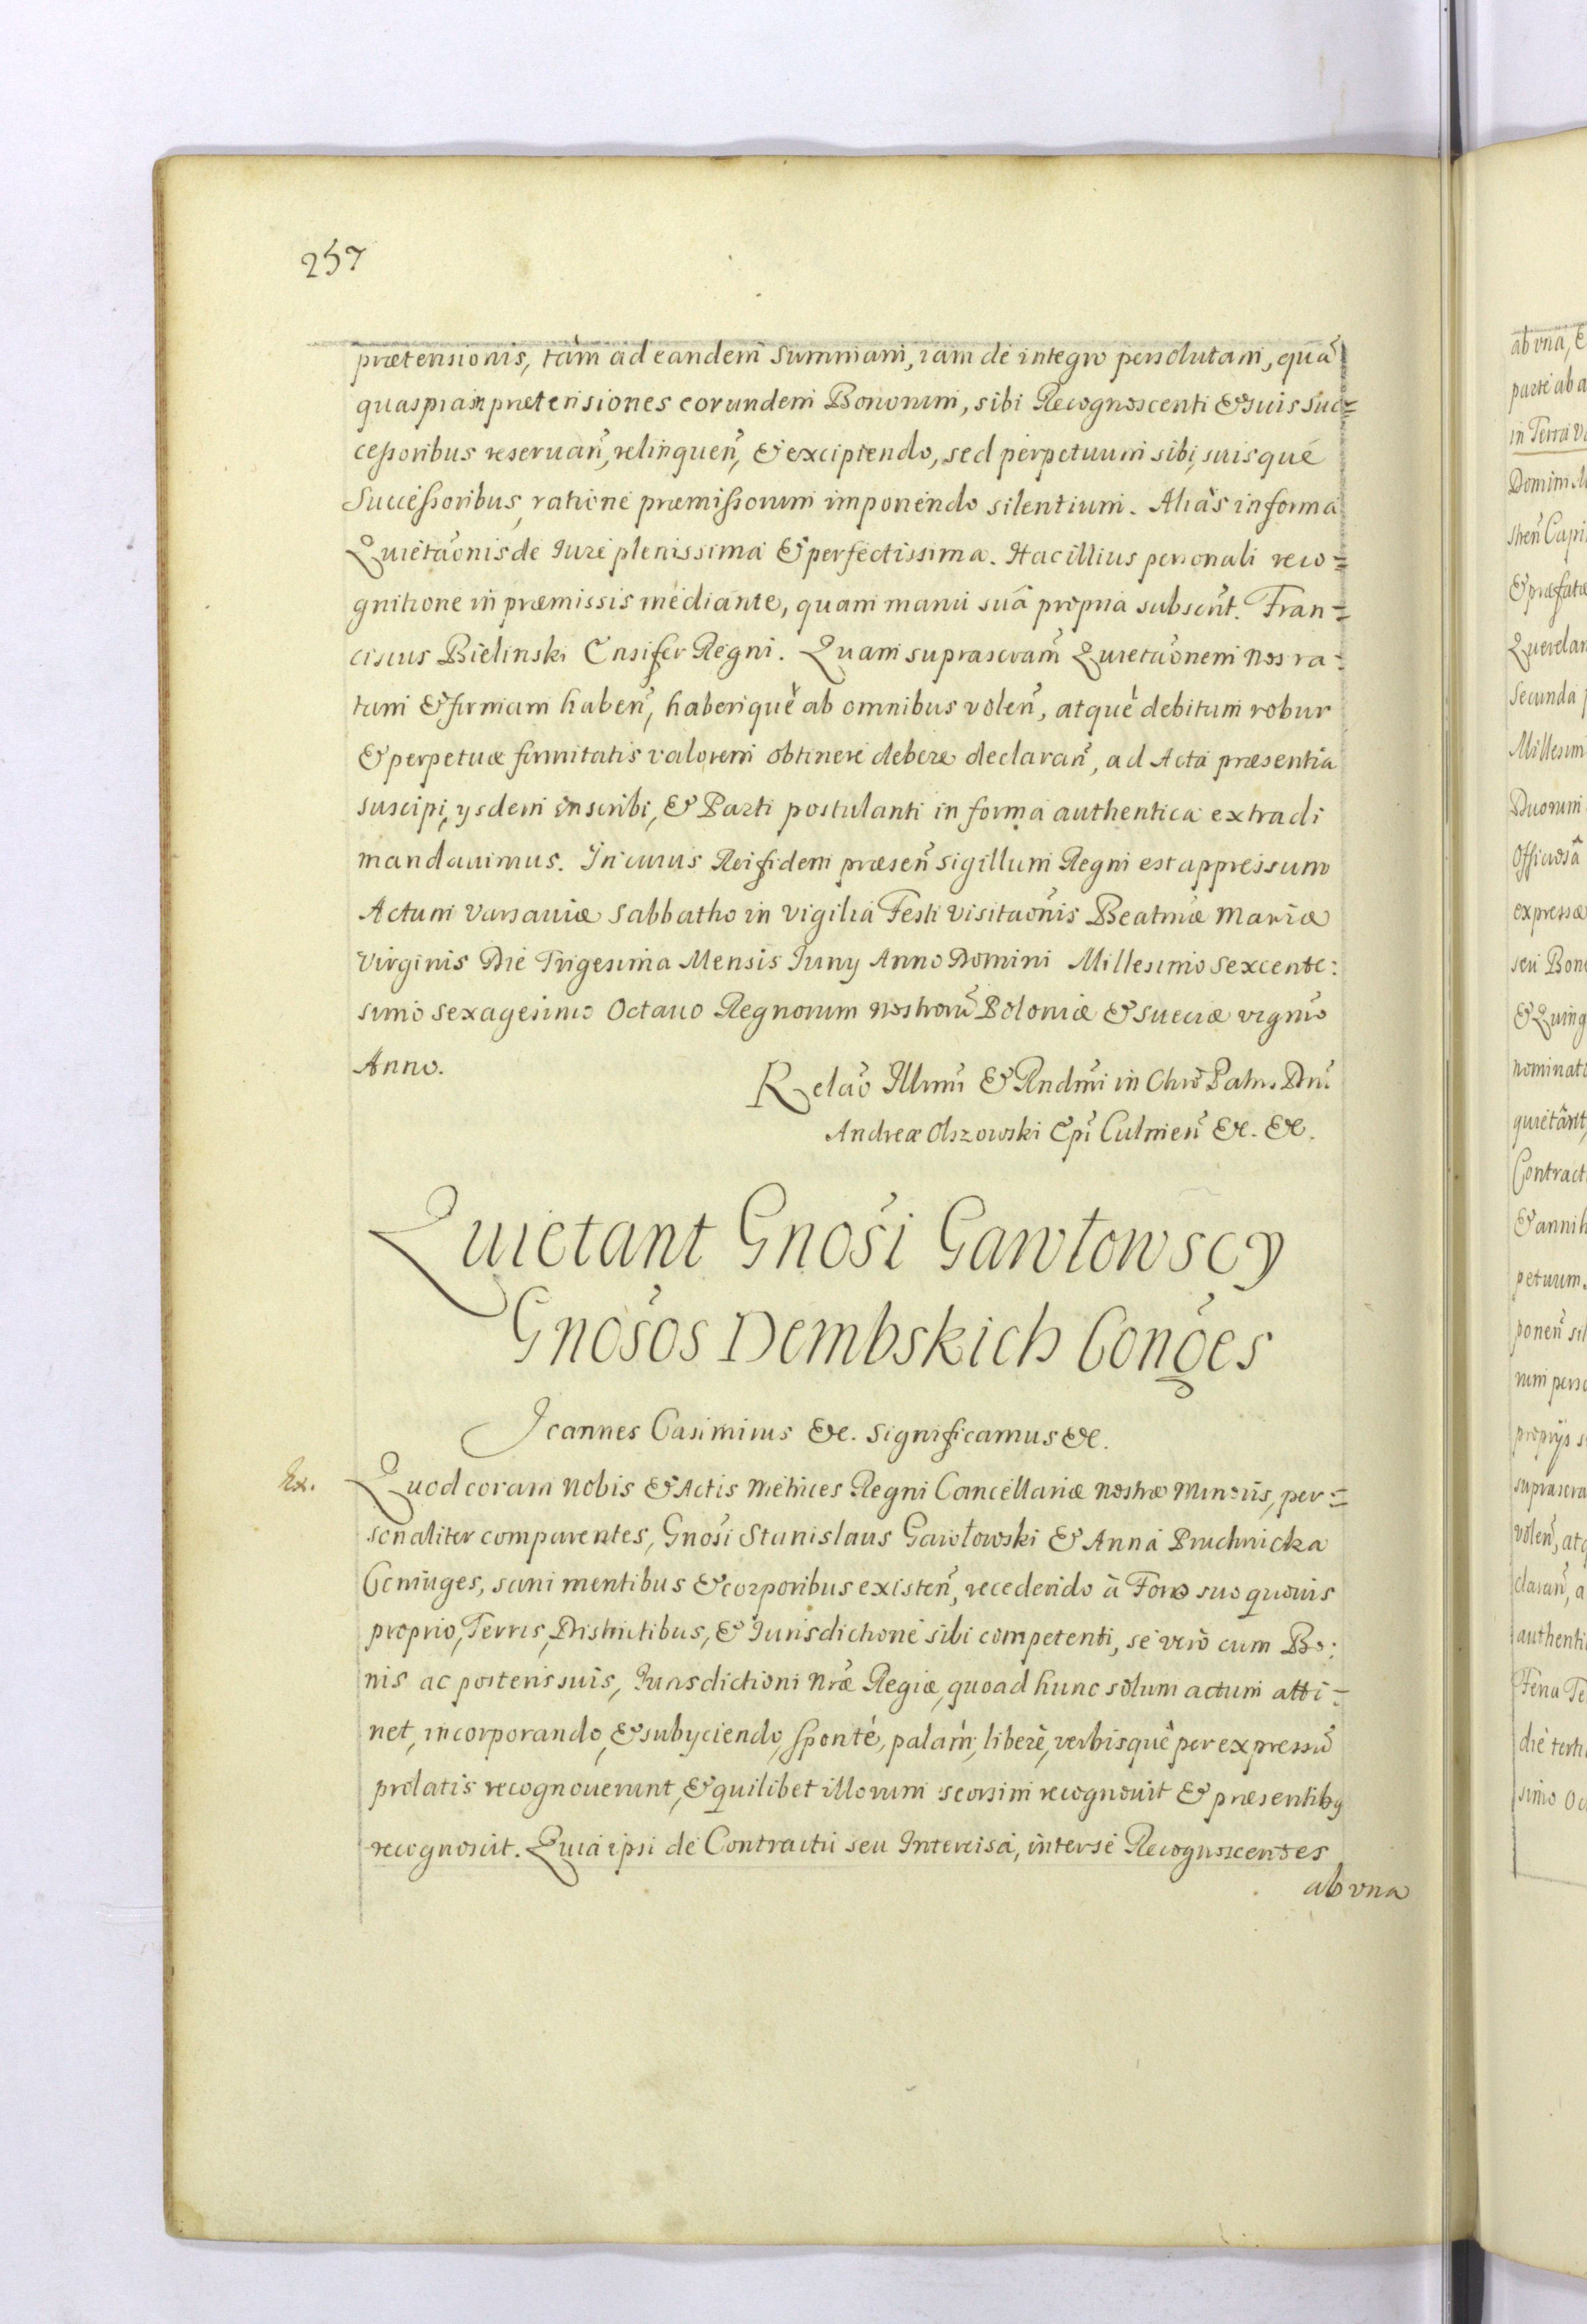 257
prætensionis, tàm ad eandem summam, iam de integro persolutam, quã
quaspiam prætensiones eorundem Bonorum, sibi Recognoscenti & suis suc=
cessoribus reseruañ, relinqueñ, & excipiendo, sed perpetuum sibi, suisque
Successoribus, ratione præmissorum imponendo silentium. Aliàs in forma
Quietãonis de Iure plenissima & perfectissima. Hac illius personali reco=
gnitione in præmissis mediante, quam manu suâ propria subscr̃t. Fran=
ciscus Bielinski Ensifer Regni. Quam suprascram̃ Quietãonem Nos ra=
tam & firmam habeñ, haberiquè ab omnibus voleñ, atquè debitum robur
& perpetuæ firmitatis valorem obtinere debere declarañ, ad Acta præsentia
suscipi, ysdem inscribi, & Parti postulanti in forma authentica extradi
mandauimus. In cuius Rei fidem præseñ sigillum Regni est appressum
Actum Varsauiæ Sabbatho in vigilia Festi Visitaõnis Beatmæ Mariæ
Virginis Die Trigesima Mensis Iuny Anno Domini Millesimo Sexcente:
simo Sexagesimo Octauo Regnorum nostrorũ Poloniæ & Sueciæ vigmõ
Anno.
Relaõ Illmi & Rndm̃i in Chrõ Patris Dñi
Andreæ Olszowski Epĩ Culmeñ &c. &c.
Quietant Gnosi Gawłowscy
Gnosos Dembskich Conges
Ioannes Casimirus &c. Significamus &c.
Ex.
Quod coram Nobis & Actis Metrices Regni Cancellariæ Nostræ Minoris, per=
sonaliter comparentes, Gnosi Stanislaus Gawłowski & Anna Pruchnicka
Coniuges, sani mentibus & corporibus existeñ, recedendo à Foro suo quouis
proprio, Terris, Districtibus, & Iurisdictione sibi competenti, se verò cum Bo:
nis ac posteris suis, Iurisdictioni Nræ Regiæ, quoad hunc solum actum atti=
net, incorporando, & subyciendo, sponte, palàm, liberè, verbisquè per expressũ
prolatis recognouerunt, & quilibet illorum seorsim recognouit & præsentiby
recognoscit. Quia ipsi de Contractu seu Intercisa, inter se Recognoscentes
ab vna